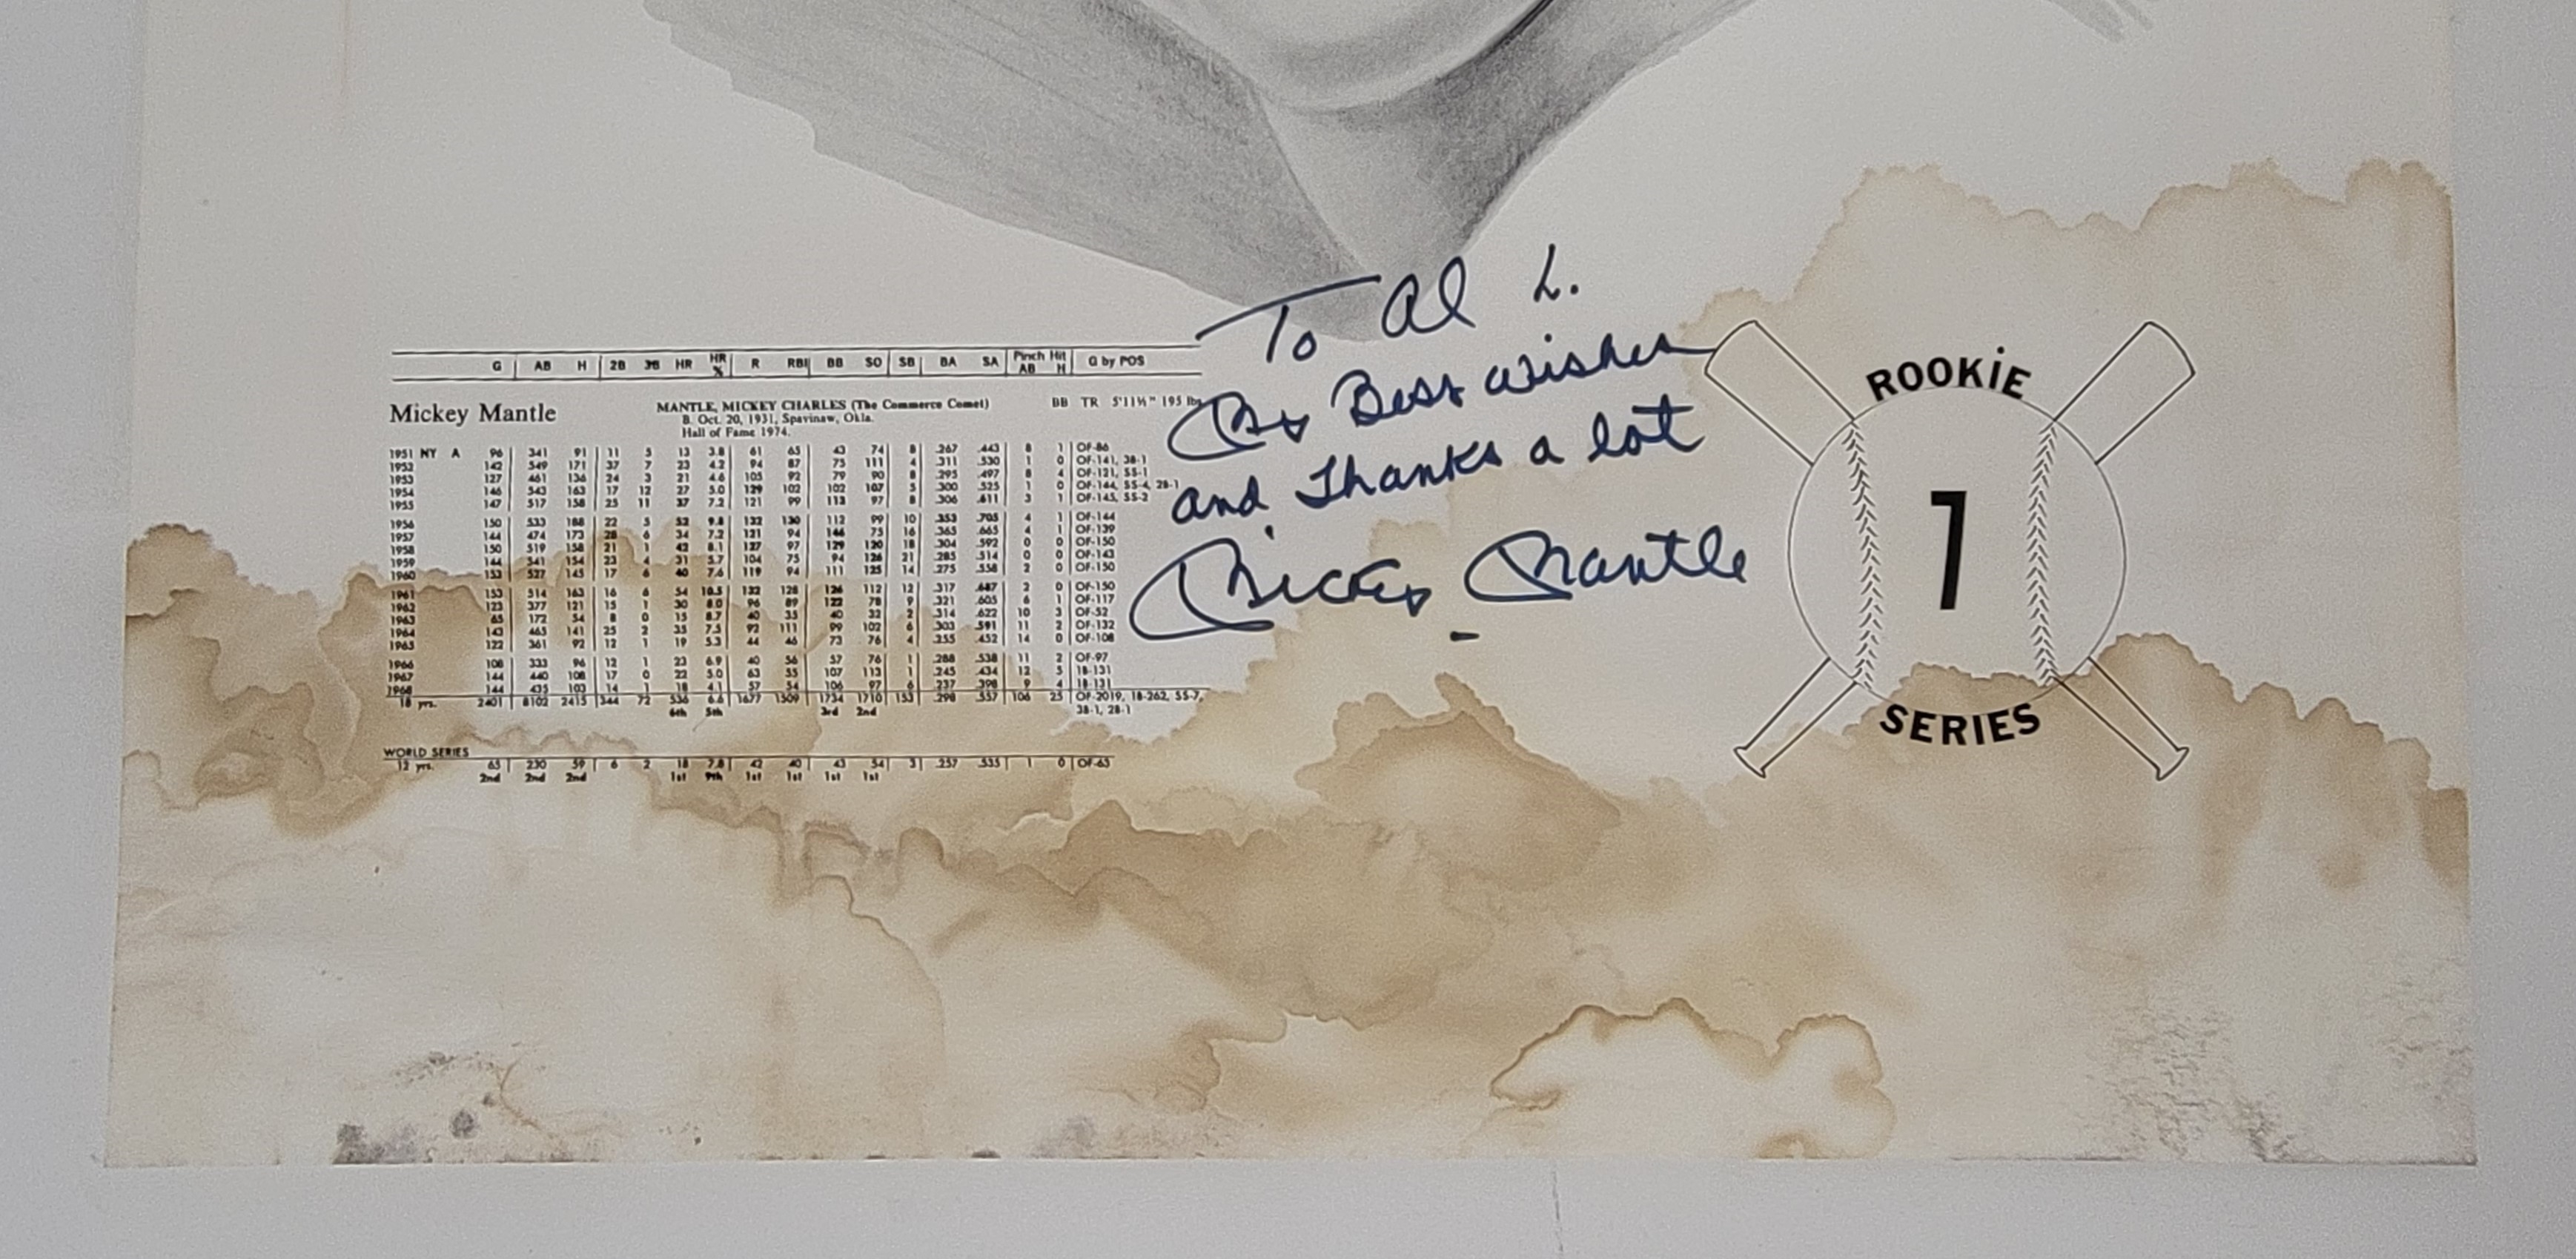 G AB H 2B 3B HR HR % R RBI BB SO SB BA SA Pinch Hit AB H G by POS
Mickey Mantle
MANTLE, MICKEY CHARLES (The Commerce Comet) BB TR 5'11½" 195 lbs.
B. Oct. 20, 1931, Spavinaw, Okla.
Hall of Fame 1974.
1951 NY A 96 341 91 11 5 13 3.8 61 65 43 74 8 .267 .443 8 1 OF-86
1952 142 549 171 37 7 23 4.2 94 87 75 111 4 .311 .530 1 0 OF-141, 3B-1
1953 127 461 136 24 3 21 4.6 105 92 79 90 8 .295 .497 8 4 OF-121, SS-1
1954 146 543 163 17 12 27 5.0 129 102 102 107 5 .300 .525 1 0 OF-144, SS-4, 2B-1
1955 147 517 158 25 11 37 7.2 121 99 113 97 8 .306 .611 3 1 OF-145, SS-2
1956 150 533 188 22 5 52 9.8 132 130 112 99 10 .353 .705 4 1 OF-144
1957 144 474 173 28 6 34 7.2 121 94 146 75 16 .365 .665 4 1 OF-139
1958 150 519 158 21 1 42 8.1 127 97 129 120 18 .304 .592 0 0 OF-150
1959 144 541 154 23 4 31 5.7 104 75 94 126 21 .285 .514 0 0 OF-143
1960 153 527 145 17 6 40 7.6 119 94 111 125 14 .275 .558 2 0 OF-150
1961 153 514 163 16 6 54 10.5 132 128 126 112 12 .317 .687 2 0 OF-150
1962 123 377 121 15 1 30 8.0 96 89 122 78 9 .321 .605 6 1 OF-117
1963 65 172 54 8 0 15 8.7 40 35 40 32 2 .314 .622 10 3 OF-52
1964 143 465 141 25 2 35 7.5 92 111 99 102 6 .303 .591 11 2 OF-132
1965 122 361 92 12 1 19 5.3 44 46 73 76 4 .255 .452 14 0 OF-108
1966 108 333 96 12 1 23 6.9 40 56 57 76 1 .288 .538 11 2 OF-97
1967 144 440 108 17 0 22 5.0 63 55 107 113 1 .245 .434 12 5 1B-131
1968 144 435 103 14 1 18 4.1 57 54 106 97 6 .237 .398 9 4 1B-131
18 yrs. 2401 8102 2415 344 72 536 6.6 1677 1509 1734 1710 153 .298 .557 106 25 OF-2019, 1B-262, SS-7,
6th 5th 3rd 2nd 3B-1, 2B-1
WORLD SERIES
12 yrs. 65 230 59 6 2 18 7.8 42 40 43 54 3 .257 .535 1 0 OF-63
2nd 2nd 2nd 1st 9th 1st 1st 1st 1st
To Al L.
My Best wishes
and Thanks a lot
Mickey Mantle
ROOKiE
7
SERIES